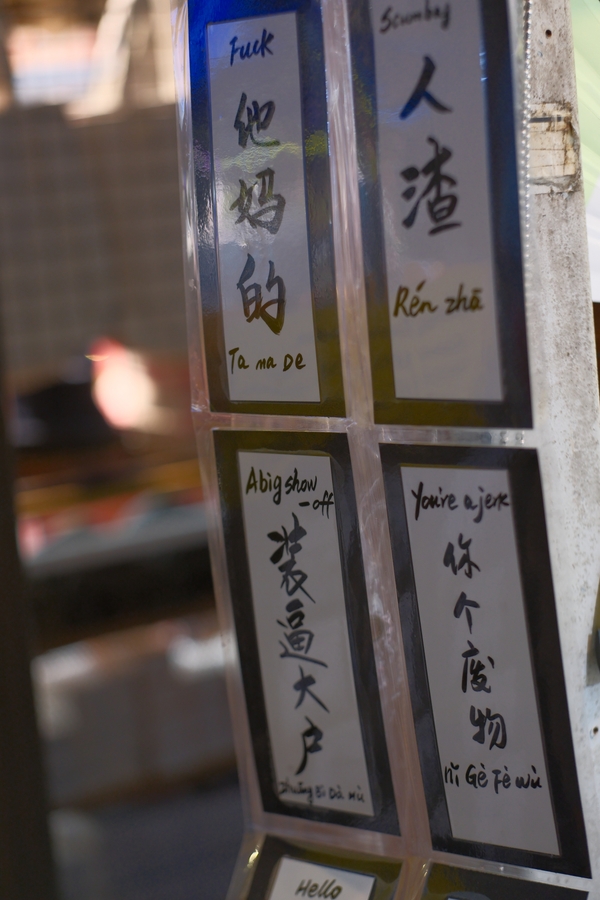 Fuck
他
妈
的
Ta ma De
Scumbag
人
渣
Rén zhā
A big show
-off
装
逼
大
户
Zhuāng Bī Dà Hù
You're a jerk
你
个
废
物
nǐ Gè Fèi wù
Hello